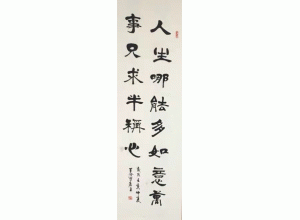 人生哪能多如意萬
事只求半稱心